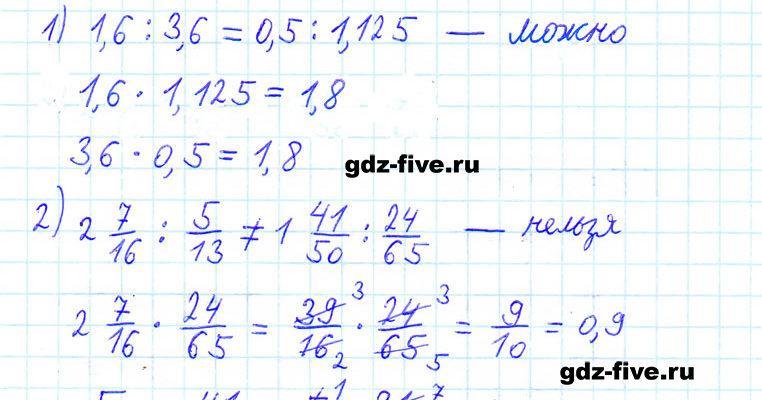 1) 1,6 : 3,6 = 0,5 : 1,125 — можно
1,6 · 1,125 = 1,8
3,6 · 0,5 = 1,8
gdz-five.ru
gdz-five.ru
2) 2 7/16 : 5/13 ≠ 1 41/50 : 24/65 — нельзя
2 7/16 · 24/65 = 39/16 · 24/65 = 9/10 = 0,9
3 3
2 5
gdz-five.ru